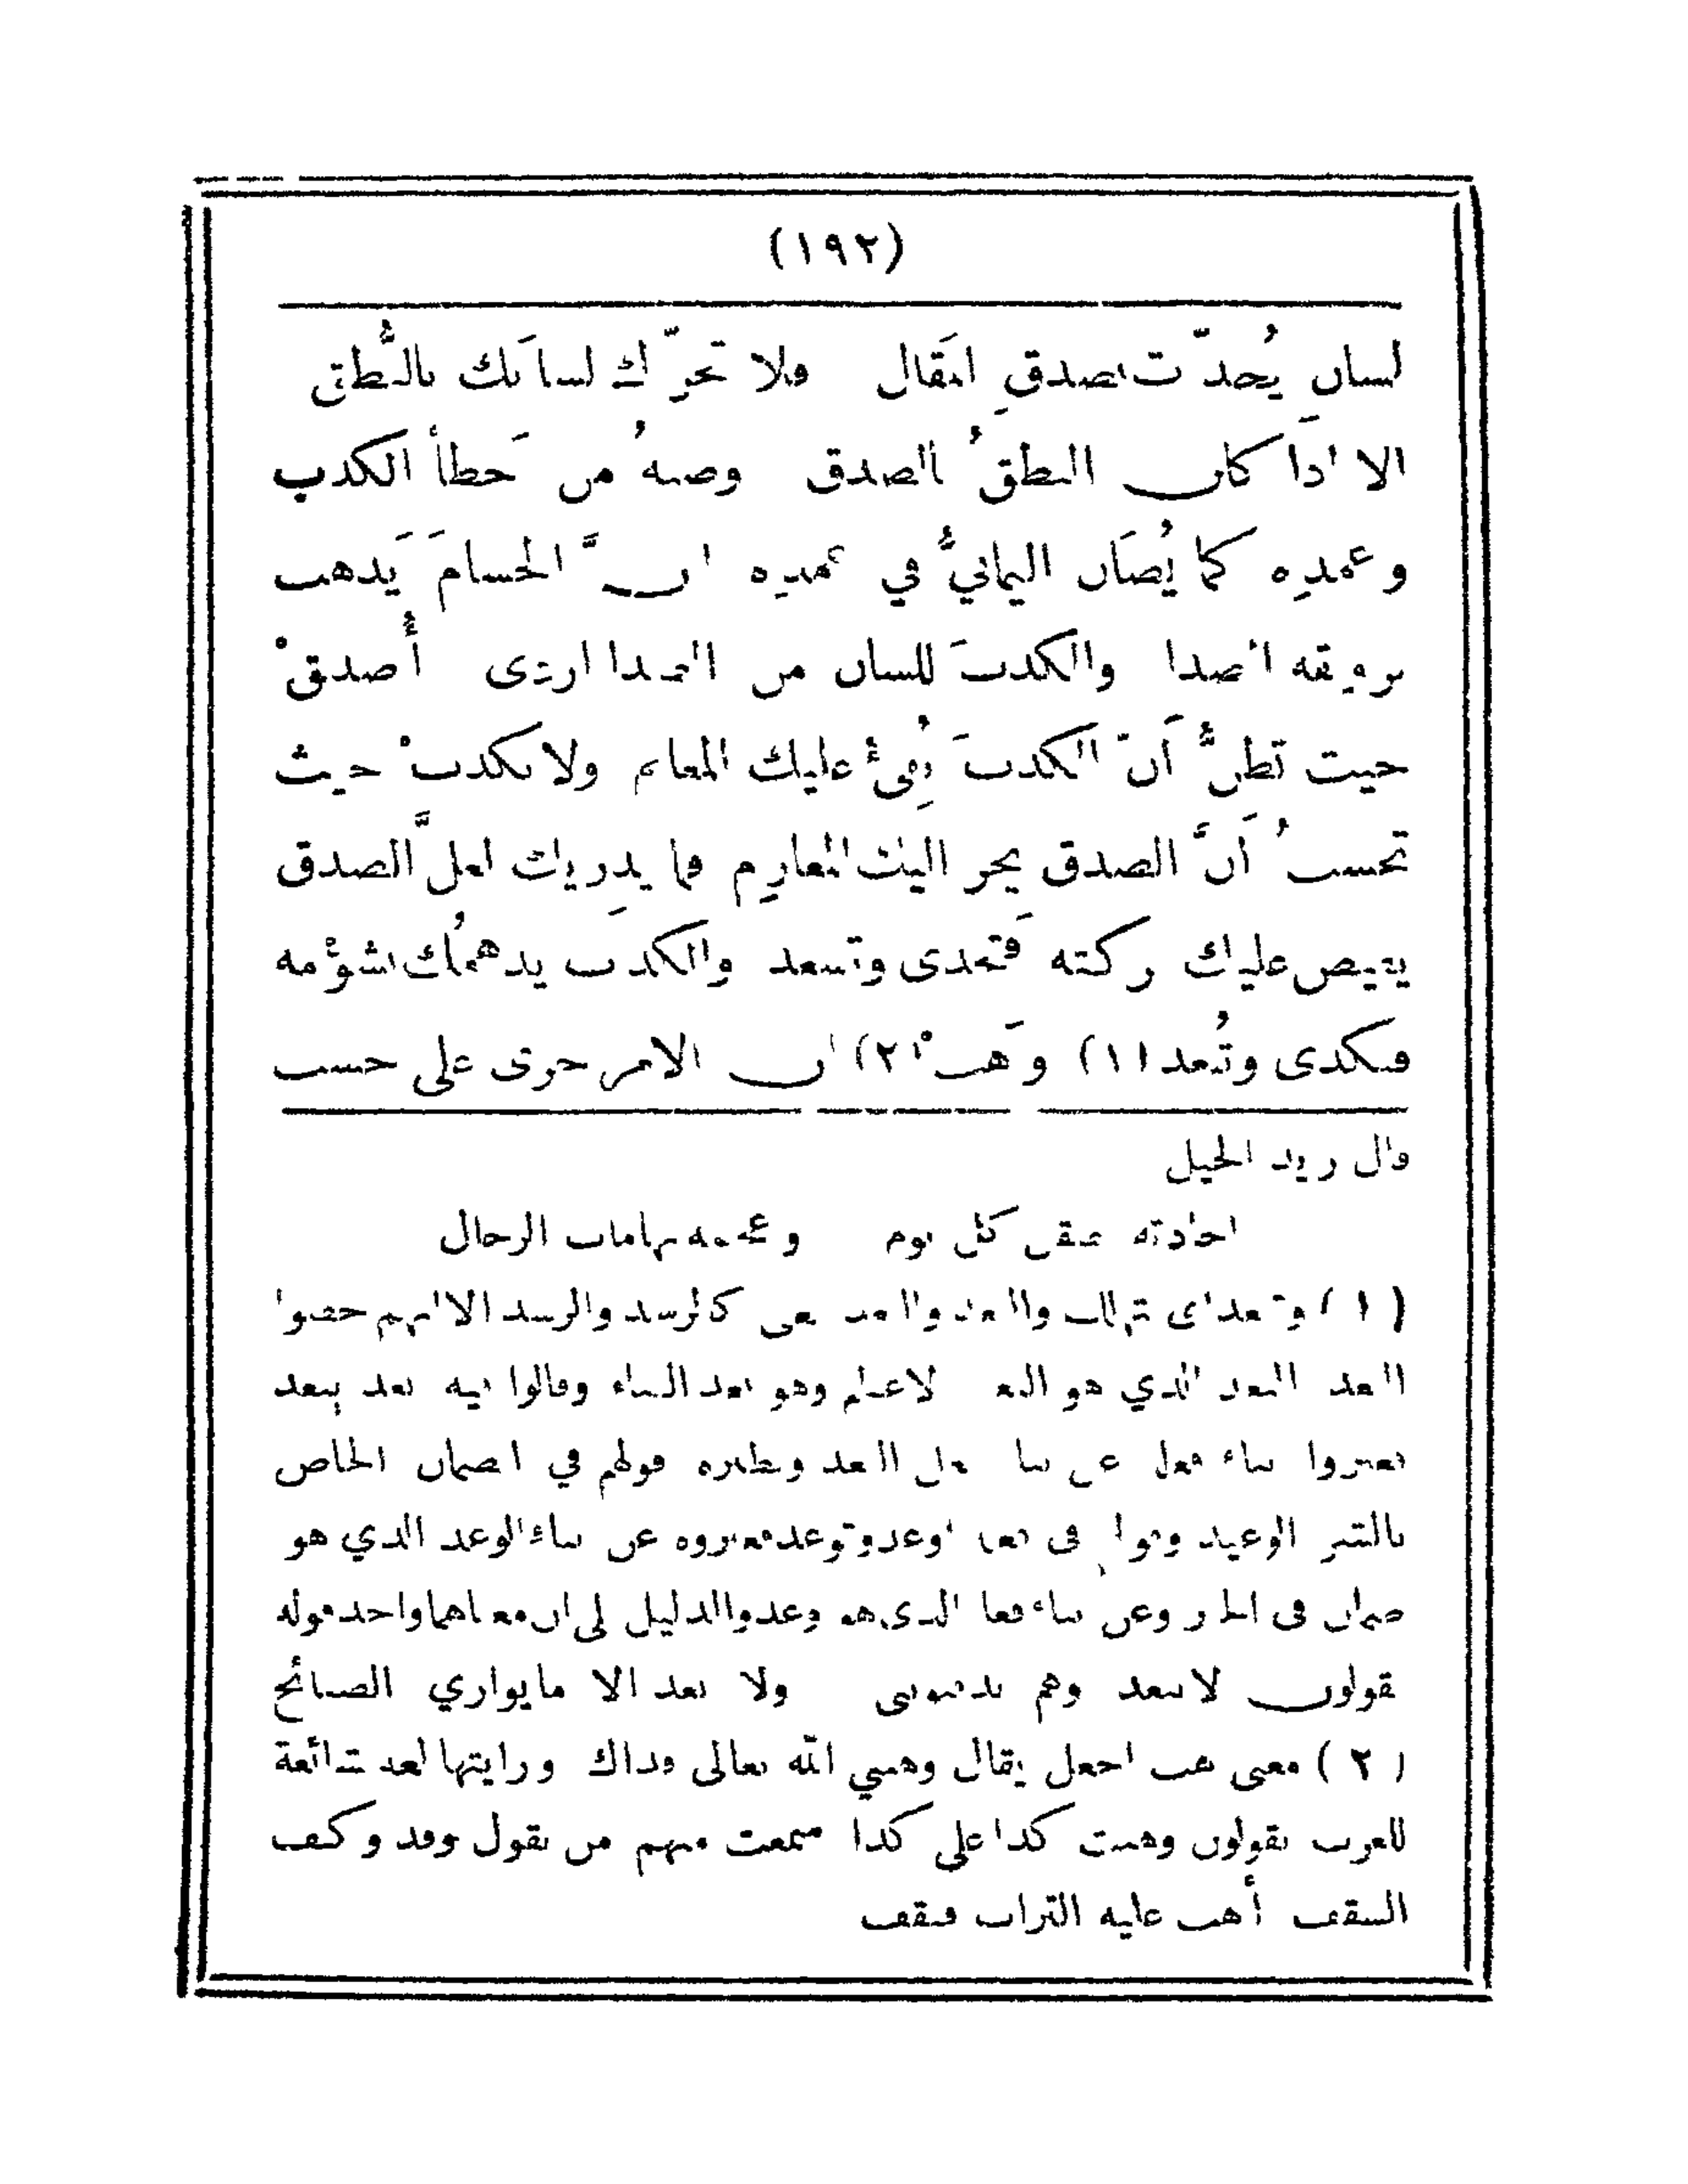 (١٩٢)
لسان يُحدّث بصدقِ المَقال ولا تحرّك لسانَك بالنُّطق
الا اذَا كان النطقُ بالصدق وصنهُ من خَطأ الكذب
وعمدِه كما يُصَان اليمانيُّ في غمدِه انَّ الحسامَ يَذهب
برونقه الصدا والكذبَ للسان من الصدا اردى أُصدقْ
حيث تظنُّ أَنّ الكذبَ يُفِيُّ عليك المغانم ولا تكذبْ حيث
تحسبُ أَنَّ الصدق يجر اليك المغارم فما يدرِيك لعلَّ الصدق
يفيض عليك بركته فَتجدى وتسعد والكذب يدهمُك بشؤْمه
فتكدى وتُبعد (١) وَهبْ (٢) ان الامر جرى على حسب
قال زيد الخيل
احادثه بصقل كل يوم وعجمه بهامات الرجال
(١) وتبعد اى تهلك والبعد والبعد بمعنى كالرشد والرشد الا انهم خصوا
البعد البعد الذي هو الهلاك وهو بعد البناء وقالوا فيه بعد يبعد
فغيروا بناء فعل عن بناء فعل البعد ونظيره قولهم في الضمان الخاص
بالشر الوعيد وبنوا فى فعله اوعد وتوعد فغيروه عن بناء الوعد الذي هو
ضمان فى الخير وعن بناء فعله الذى هو وعد والدليل على ان معناهما واحد قوله
يقولون لا تبعد وهم يدفنوننى ولا بعد الا ما يواري الصفائح
(٢) معنى هب اجعل يقال وهبني الله تعالى فداك ورايتها لغة شائعة
للعرب يقولون وهبت كذا على كذا سمعت منهم من يقول وقد وكف
السقف أهب عليه التراب فيقف